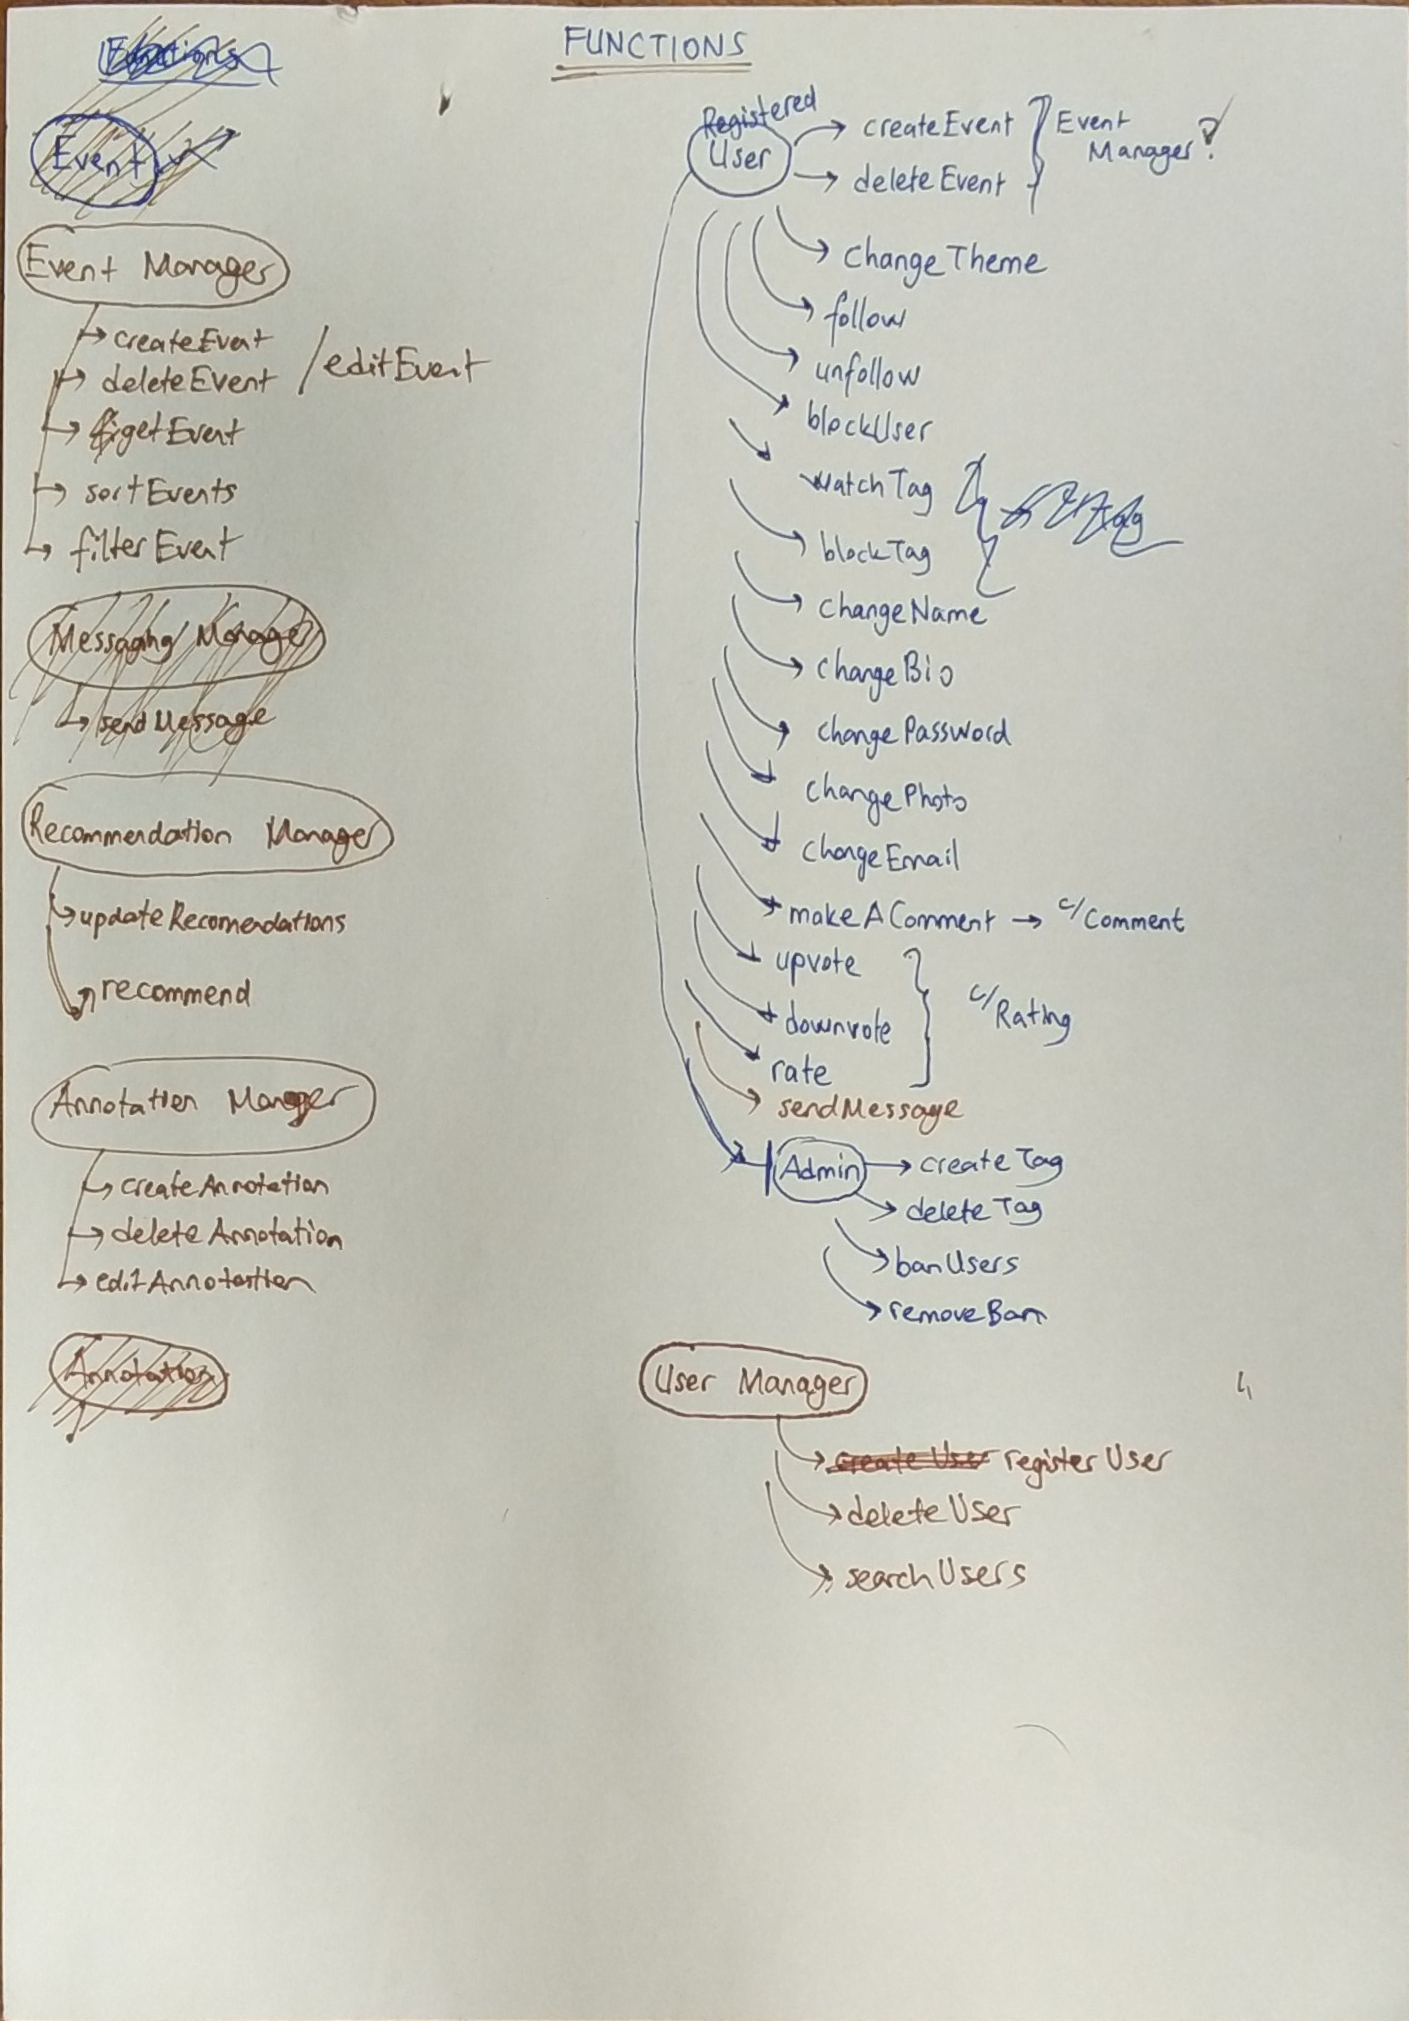 FUNCTIONS
Functions
Event
Event Manager
createEvent
deleteEvent / editEvent
getEvent
sortEvents
filterEvent
Messaging Manager
sendMessage
Recommendation Manager
updateRecomendations
recommend
Annotation Manager
createAnnotation
deleteAnnotation
editAnnotation
Annotation
Registered
User
createEvent
deleteEvent
Event
Manager?
changeTheme
follow
unfollow
blockUser
watchTag
blockTag
changeName
changeBio
changePassword
changePhoto
changeEmail
makeAComment → c/Comment
upvote
downvote
rate
c/Rating
sendMessage
Admin
createTag
deleteTag
banUsers
removeBan
User Manager
create User registerUser
deleteUser
searchUsers